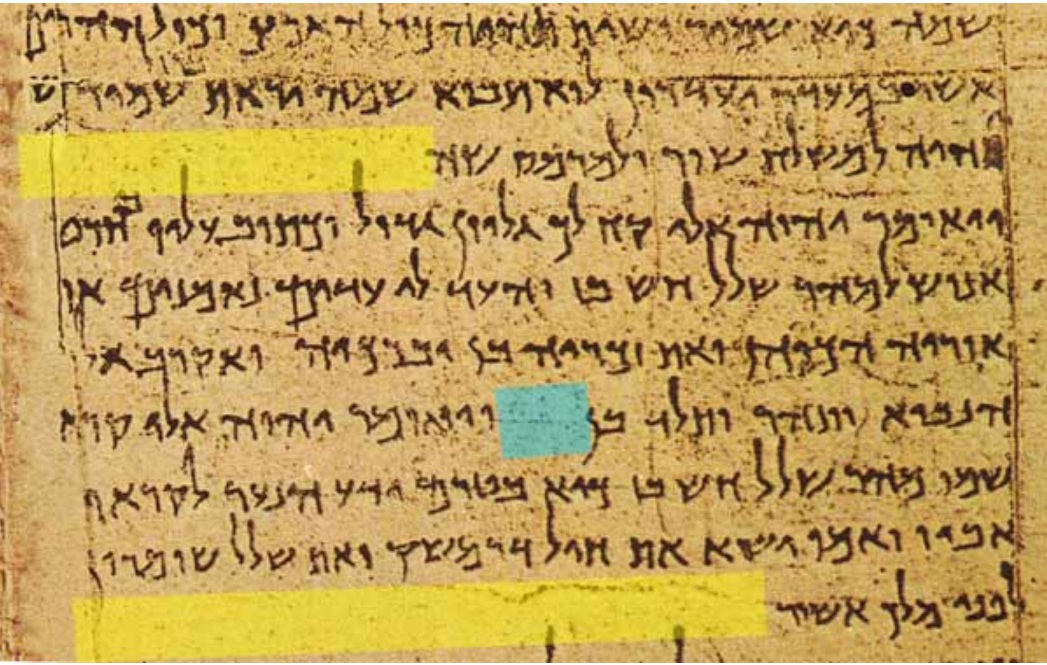 שמה כיא שמיר ושית תהיה כול הארץ וכול ההרים
אשר במעדר יעדרון לוא תבוא שמה יראת שמיר וש
והיה למשלח שור ולמרמס שה
ויואמר יהוה אלי קח לך גליון גדול וכתוב עליו בחרט
אנוש למהר שלל חש בז והעד לי עדים נאמנים את
אוריה הכוהן ואת זכריה בן יברכיה ואקרב אל
הנביא ותהר ותלד בן ויואמר יהוה אלי קרא
שמו מהר שלל חש בז כיא בטרם ידע הנער לקרא
אביו ואמו ישא את חיל דרמשק ואת שלל שומרון
לפני מלך אשור